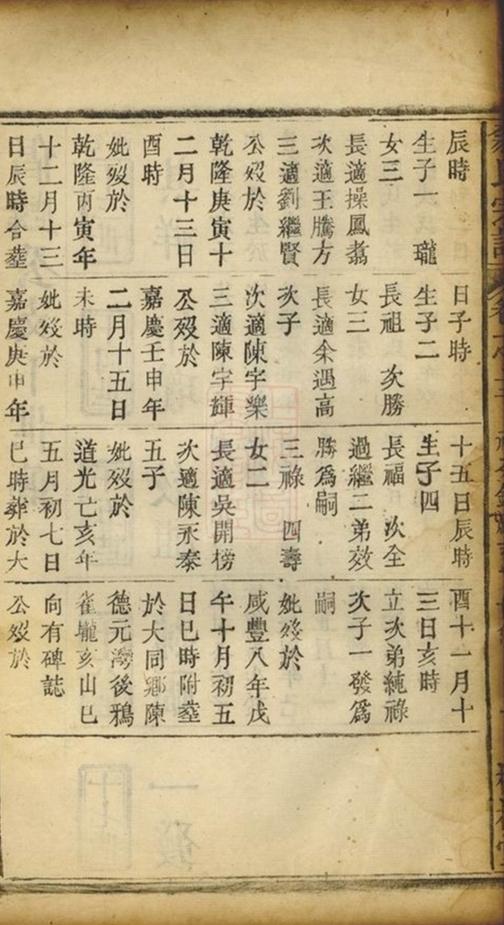 辰時
生子一 瓏
女三
長適操鳳翥
次適王騰方
三適劉繼賢
公歿於
乾隆庚寅十
二月十三日
酉時
妣歿於
乾隆丙寅年
十二月十三
日辰時合塟
日子時
生子二
長祖 次勝
女三
長適余遇高
次子
次適陳宇樂
三適陳宇輝
公歿於
嘉慶壬申年
二月十五日
未時
妣歿於
嘉慶庚申年
十五日辰時
生子四
長福 次全
過繼二弟效
勝為嗣
三祿 四壽
女二
長適吳開榜
次適陳永泰
五子
妣歿於
道光亡亥年
五月初七日
巳時葬於大
酉十一月十
三日亥時
立次弟純祿
次子一發為
嗣
妣歿於
咸豐八年戊
午十月初五
日巳時附塟
於大同鄉陳
德元灣後鴉
雀壠亥山巳
向有碑誌
公歿於